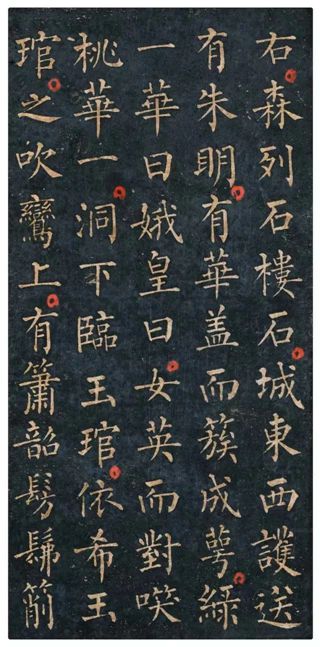 右森列石樓石城東西護送
有朱眀有華盖而簇成萼緑
一華曰娥皇曰女英而對
桃華一洞下臨玉琯依希玉
琯之吹鸞上有簫韶髣髴箾